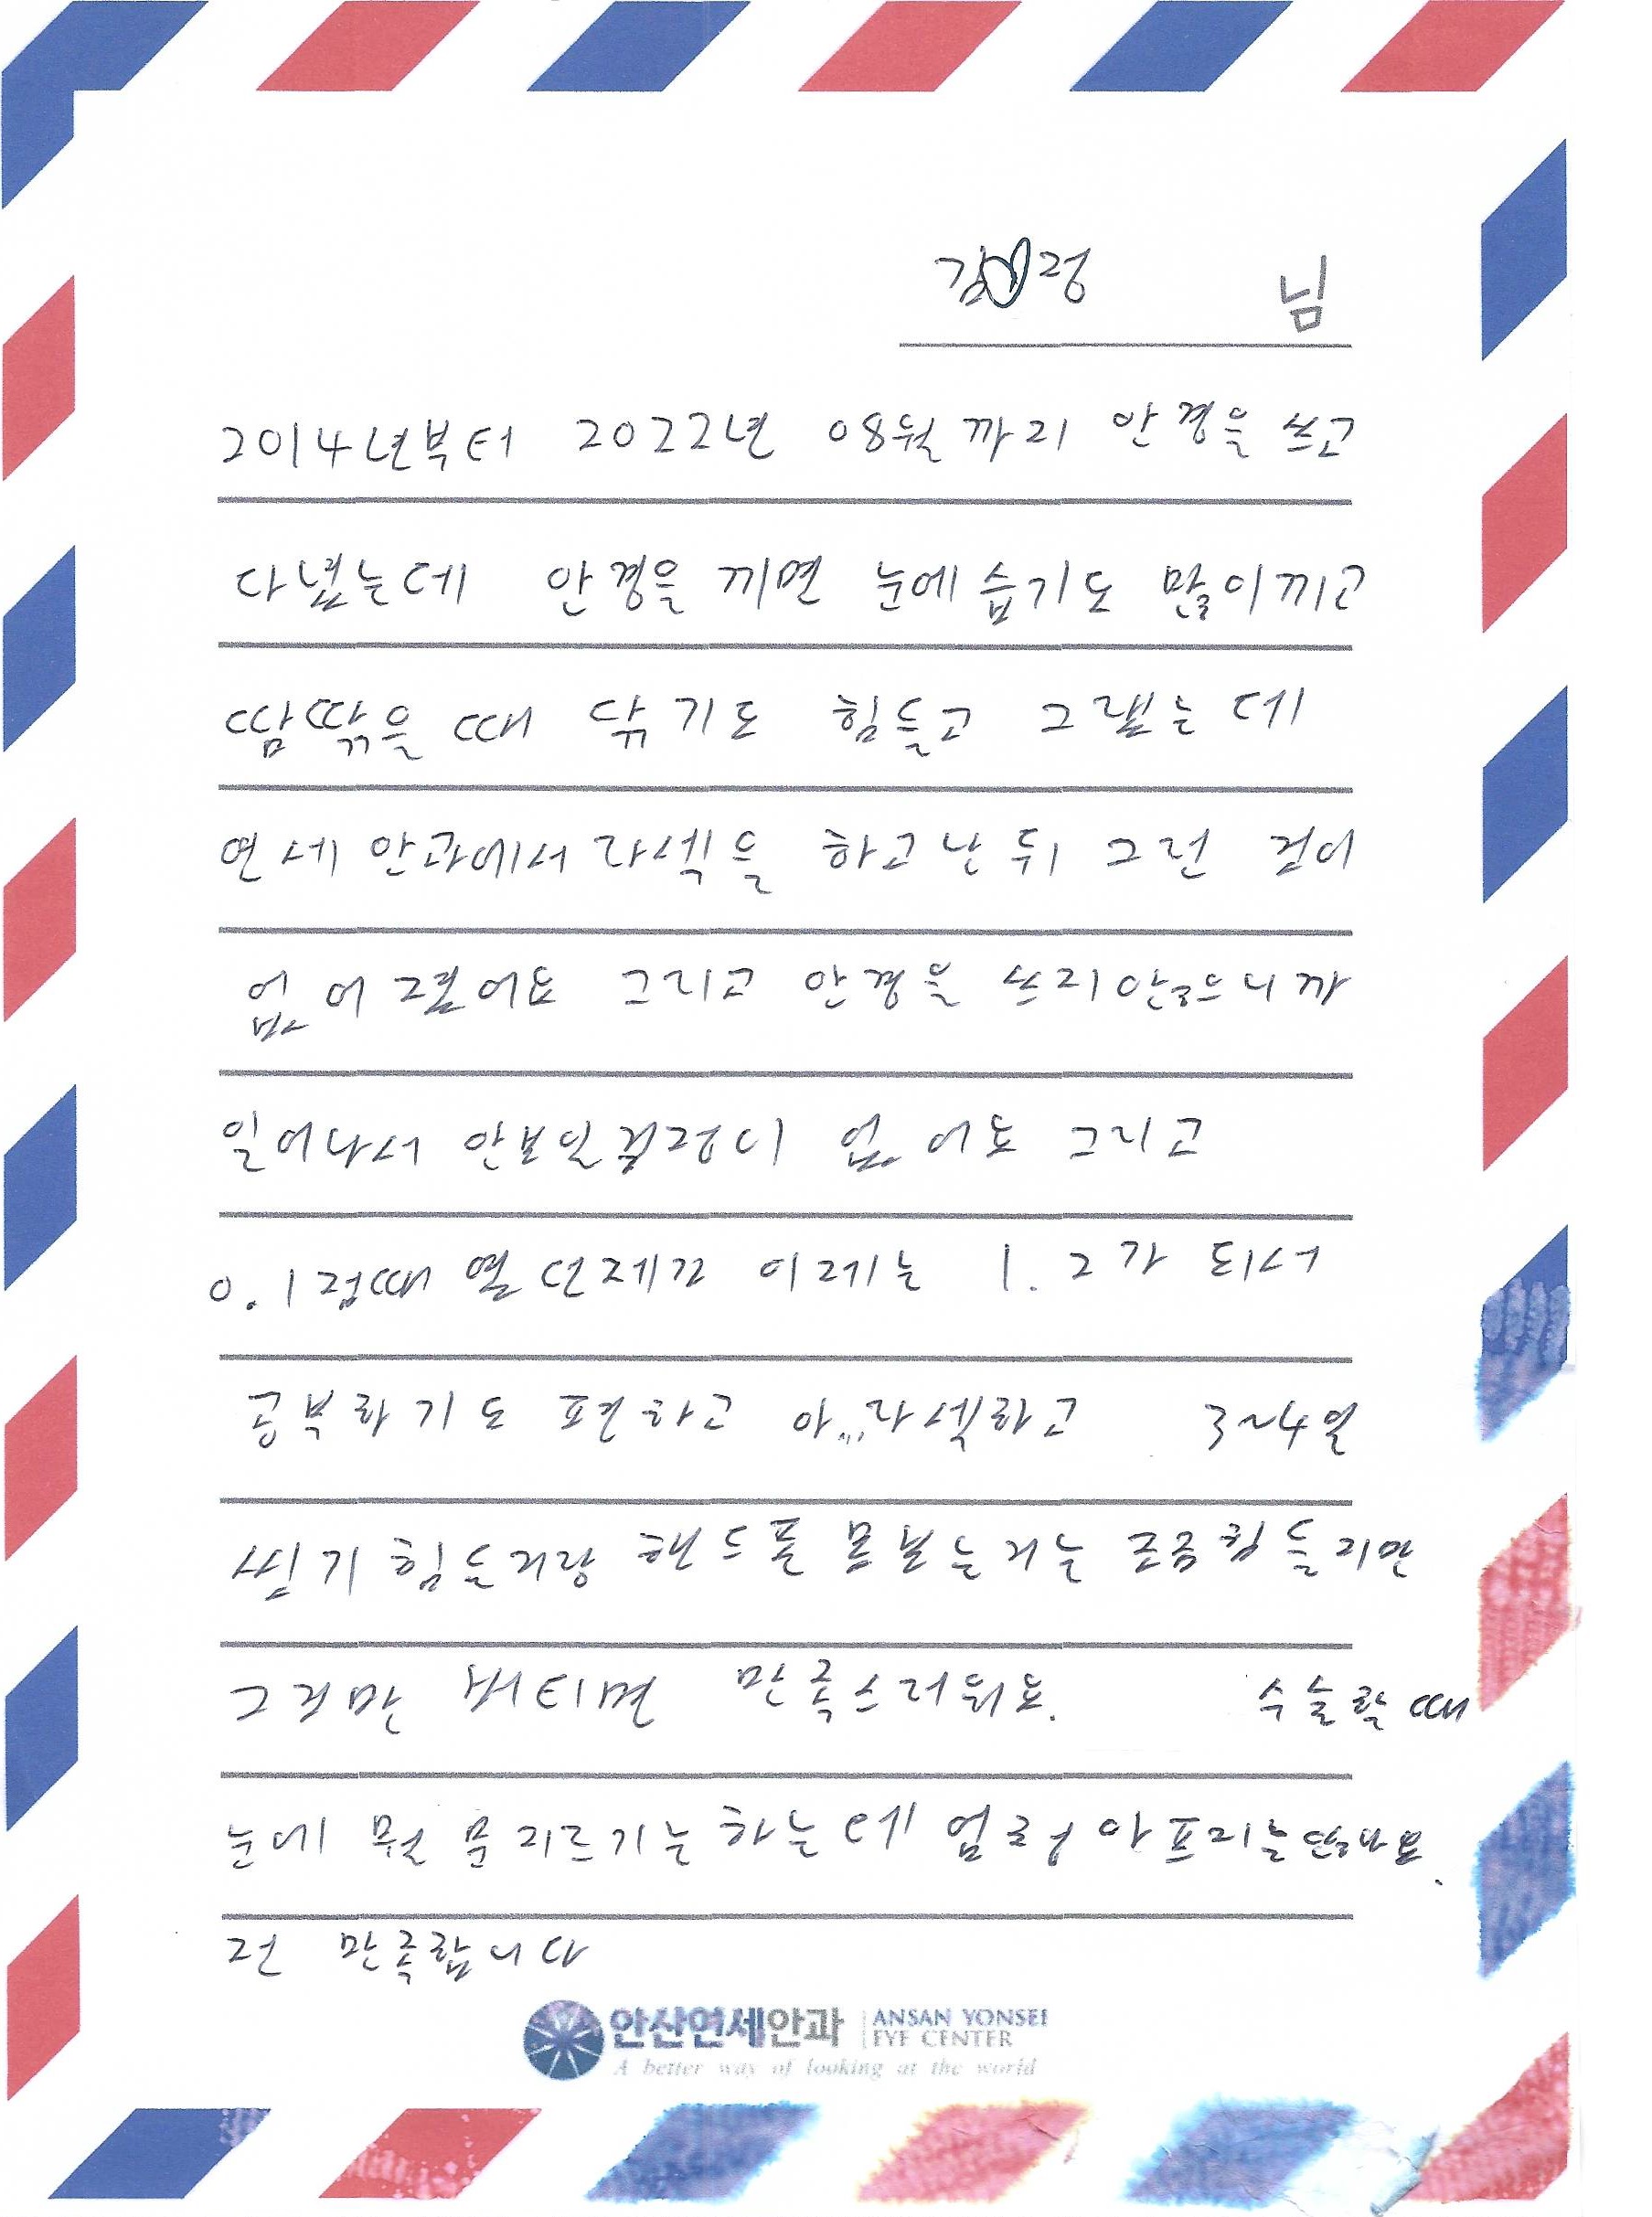 김♡정 님
2014년부터 2022년 08월까지 안경을 쓰고
다녔는데 안경을 끼면 눈에습기도 많이끼고
땀딲을 때 닦기도 힘들고 그랬는데
연세안과에서 라섹을 하고난뒤 그런 것이
없어졌어요 그리고 안경을 쓰지안으니까
일어나서 안보일걱정이 없어요 그리고
0.1정때 였던제가 이제는 1.2가 되서
공부하기도 편하고 아... 라섹하고 3~4일
씻기 힘든거랑 핸드폰 못보는거는 조금힘들지만
그것만 버티면 만족스러워요. 수술할때
눈에 뭐 문지르기는하는데 엄청 아프지는
전 만족합니다
안산연세안과 ANSAN YONSEI
EYE CENTER
A better way of looking at the world